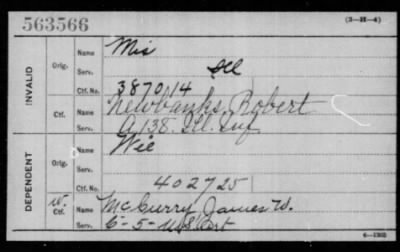 563566 (3-H-4)
INVALID
Orig. Name Mis
Serv. Ill
Ctf. No. 3870/14
Ctf. Newbanks, Robert
A, 138. Ill. Inf
DEPENDENT
Orig. Name Wie
Serv.
Ctf. No. 402725
W. Ctf. Name McCurry, James W.
Serv. 6-5- Art
6-1366